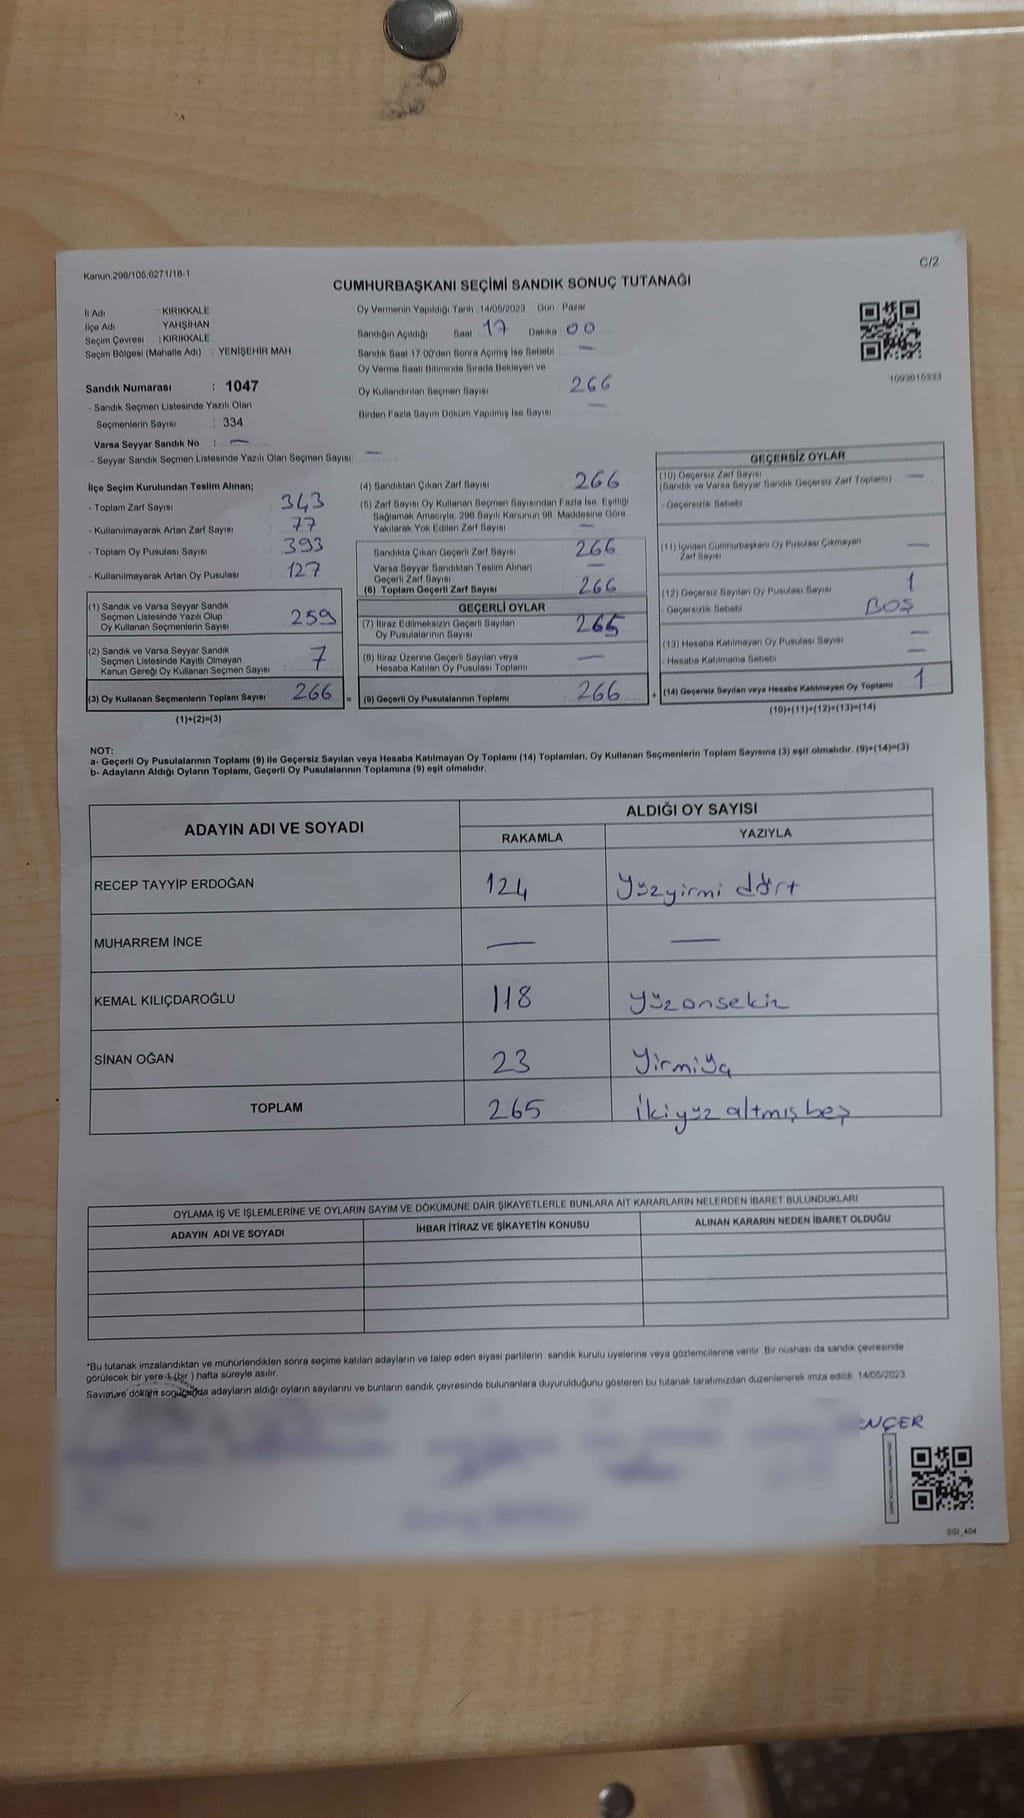 Kanun.298/105,6271/18-1
C/2
CUMHURBAŞKANI SEÇİMİ SANDIK SONUÇ TUTANAĞI
İl Adı : KIRIKKALE
İlçe Adı : YAHŞİHAN
Seçim Çevresi : KIRIKKALE
Seçim Bölgesi (Mahalle Adı) : YENİŞEHİR MAH.
Sandık Numarası : 1047
- Sandık Seçmen Listesinde Yazılı Olan
Seçmenlerin Sayısı : 334
Varsa Seyyar Sandık No : —
- Seyyar Sandık Seçmen Listesinde Yazılı Olan Seçmen Sayısı: —
Oy Vermenin Yapıldığı Tarih : 14/05/2023 Gün : Pazar
Sandığın Açıldığı Saat 17 Dakika 00
Sandık Saat 17.00'den Sonra Açılmış İse Sebebi : —
Oy Verme Saati Bitiminde Sırada Bekleyen ve
Oy Kullandırılan Seçmen Sayısı 266
Birden Fazla Sayım Döküm Yapılmış İse Sayısı —
1093615333
İlçe Seçim Kurulundan Teslim Alınan;
- Toplam Zarf Sayısı : 343
- Kullanılmayarak Artan Zarf Sayısı : 77
- Toplam Oy Pusulası Sayısı : 393
- Kullanılmayarak Artan Oy Pusulası : 127
(1) Sandık ve Varsa Seyyar Sandık
Seçmen Listesinde Yazılı Olup
Oy Kullanan Seçmenlerin Sayısı 259
(2) Sandık ve Varsa Seyyar Sandık
Seçmen Listesinde Kayıtlı Olmayan
Kanun Gereği Oy Kullanan Seçmen Sayısı 7
(3) Oy Kullanan Seçmenlerin Toplam Sayısı 266 =
(1)+(2)=(3)
(4) Sandıktan Çıkan Zarf Sayısı : 266
(5) Zarf Sayısı Oy Kullanan Seçmen Sayısından Fazla İse, Eşitliği
Sağlamak Amacıyla, 298 Sayılı Kanunun 98. Maddesine Göre
Yakılarak Yok Edilen Zarf Sayısı —
Sandıkta Çıkan Geçerli Zarf Sayısı 266
Varsa Seyyar Sandıktan Teslim Alınan
Geçerli Zarf Sayısı —
(6) Toplam Geçerli Zarf Sayısı 266
GEÇERLİ OYLAR
(7) İtiraz Edilmeksizin Geçerli Sayılan
Oy Pusulalarının Sayısı 265
(8) İtiraz Üzerine Geçerli Sayılan veya
Hesaba Katılan Oy Pusulası Toplamı —
(9) Geçerli Oy Pusulalarının Toplamı 266 +
GEÇERSİZ OYLAR
(10) Geçersiz Zarf Sayısı —
(Sandık ve Varsa Seyyar Sandık Geçersiz Zarf Toplamı)
- Geçersizlik Sebebi
(11) İçinden Cumhurbaşkanı Oy Pusulası Çıkmayan
Zarf Sayısı —
(12) Geçersiz Sayılan Oy Pusulası Sayısı 1
- Geçersizlik Sebebi BOŞ
(13) Hesaba Katılmayan Oy Pusulası Sayısı —
- Hesaba Katılmama Sebebi —
(14) Geçersiz Sayılan veya Hesaba Katılmayan Oy Toplamı 1
(10)+(11)+(12)+(13)=(14)
NOT:
a- Geçerli Oy Pusulalarının Toplamı (9) ile Geçersiz Sayılan veya Hesaba Katılmayan Oy Toplamı (14) Toplamları, Oy Kullanan Seçmenlerin Toplam Sayısına (3) eşit olmalıdır. (9)+(14)=(3)
b- Adayların Aldığı Oyların Toplamı, Geçerli Oy Pusulalarının Toplamına (9) eşit olmalıdır.
ADAYIN ADI VE SOYADI ALDIĞI OY SAYISI
RAKAMLA YAZIYLA
RECEP TAYYİP ERDOĞAN 124 Yüzyirmi dört
MUHARREM İNCE — —
KEMAL KILIÇDAROĞLU 118 yüzonsekiz
SİNAN OĞAN 23 Yirmiüç
TOPLAM 265 İkiyüz altmış beş
OYLAMA İŞ VE İŞLEMLERİNE VE OYLARIN SAYIM VE DÖKÜMÜNE DAİR ŞİKAYETLERLE BUNLARA AİT KARARLARIN NELERDEN İBARET BULUNDUKLARI
ADAYIN ADI VE SOYADI İHBAR İTİRAZ VE ŞİKAYETİN KONUSU ALINAN KARARIN NEDEN İBARET OLDUĞU
*Bu tutanak imzalandıktan ve mühürlendikten sonra seçime katılan adayların ve talep eden siyasi partilerin sandık kurulu üyelerine veya gözlemcilerine verilir. Bir nüshası da sandık çevresinde
görülecek bir yere 1 (bir) hafta süreyle asılır.
Sayım ve döküm sonucunda adayların aldığı oyların sayılarını ve bunların sandık çevresinde bulunanlara duyurulduğunu gösteren bu tutanak tarafımızdan düzenlenerek imza edildi. 14/05/2023
NÇER
SSI_404